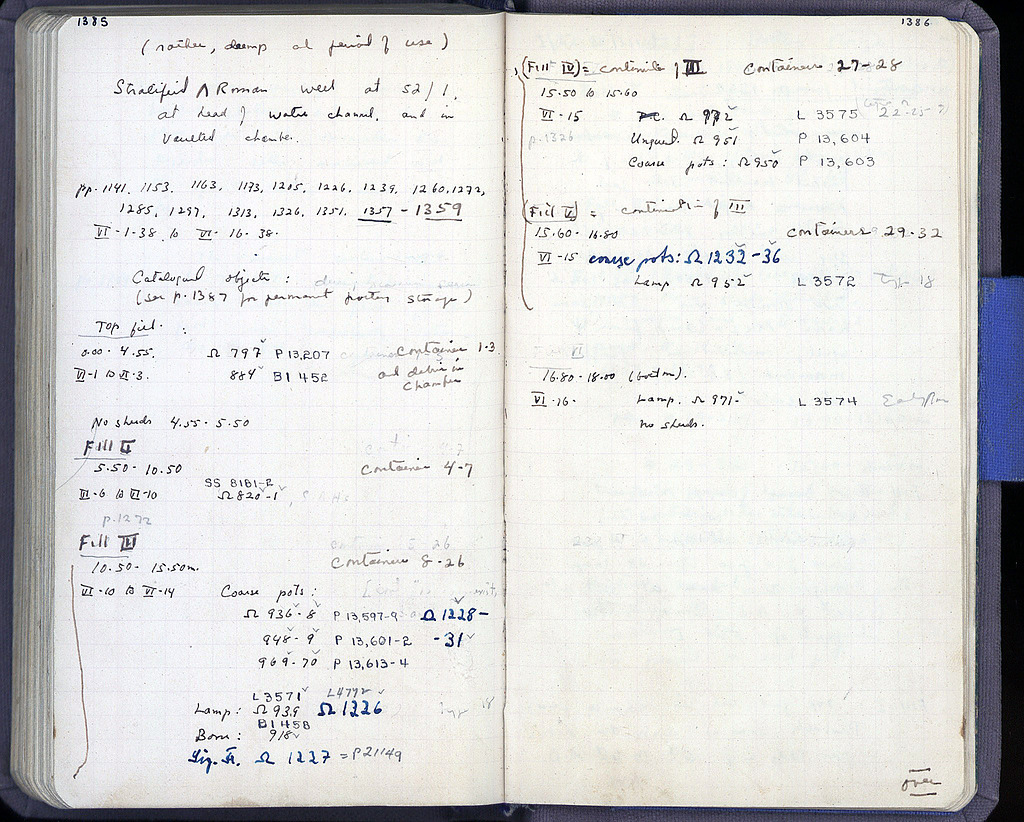 1385
(rather, dump at period of use)
Stratified Λ Roman well at 52/1,
at head of water channel, and in
vaulted chamber.
pp. 1141, 1153, 1163, 1173, 1205, 1226, 1239, 1260, 1272,
1285, 1297, 1313, 1326, 1351, 1357 - 1359
VI-1-38 to VI-16-38.
Catalogued objects :
(see p.1387 for permanent pottery storage)
Top fill. :
0.00 - 4.55. Ω 797 P 13,207 Container 1-3
VI-1 to VI-3. 884 BI 452 and debris in
chamber
No sherds 4.55 - 5.50
Fill II
5.50 - 10.50 Container 4-7
SS 8181-2
VI-6 to VI-10 Ω 820-1
p.1272
Fill III
10.50 - 15.50m. Containers 8-26
VI-10 to VI-14 Coarse pots :
Ω 936-8 P 13,597-9 Ω 1228-
948-9 P 13,601-2 -31
969-70 P 13,613-4
L3571 L4792
Lamp: Ω 939 Ω 1226 Type 18
BI 458
Bone: 918
Sig. Ω 1227 = P 21149
1386
(Fill IV) = continuation of III Containers 27-28
15.50 to 15.60
VI-15 Ω 972 L 3575
p.1326 Unguent. Ω 951 P 13,604
Coarse pots : Ω 950 P 13,603
(Fill V) = continuation of III
15.60 - 16.80 Containers 29-32
VI-15 coarse pots: Ω 1232-36
Lamp Ω 952 L 3572 Type 18
VI
16.80 - 18.00 (bottom).
VI-16. Lamp. Ω 971 L 3574
no sherds.
over